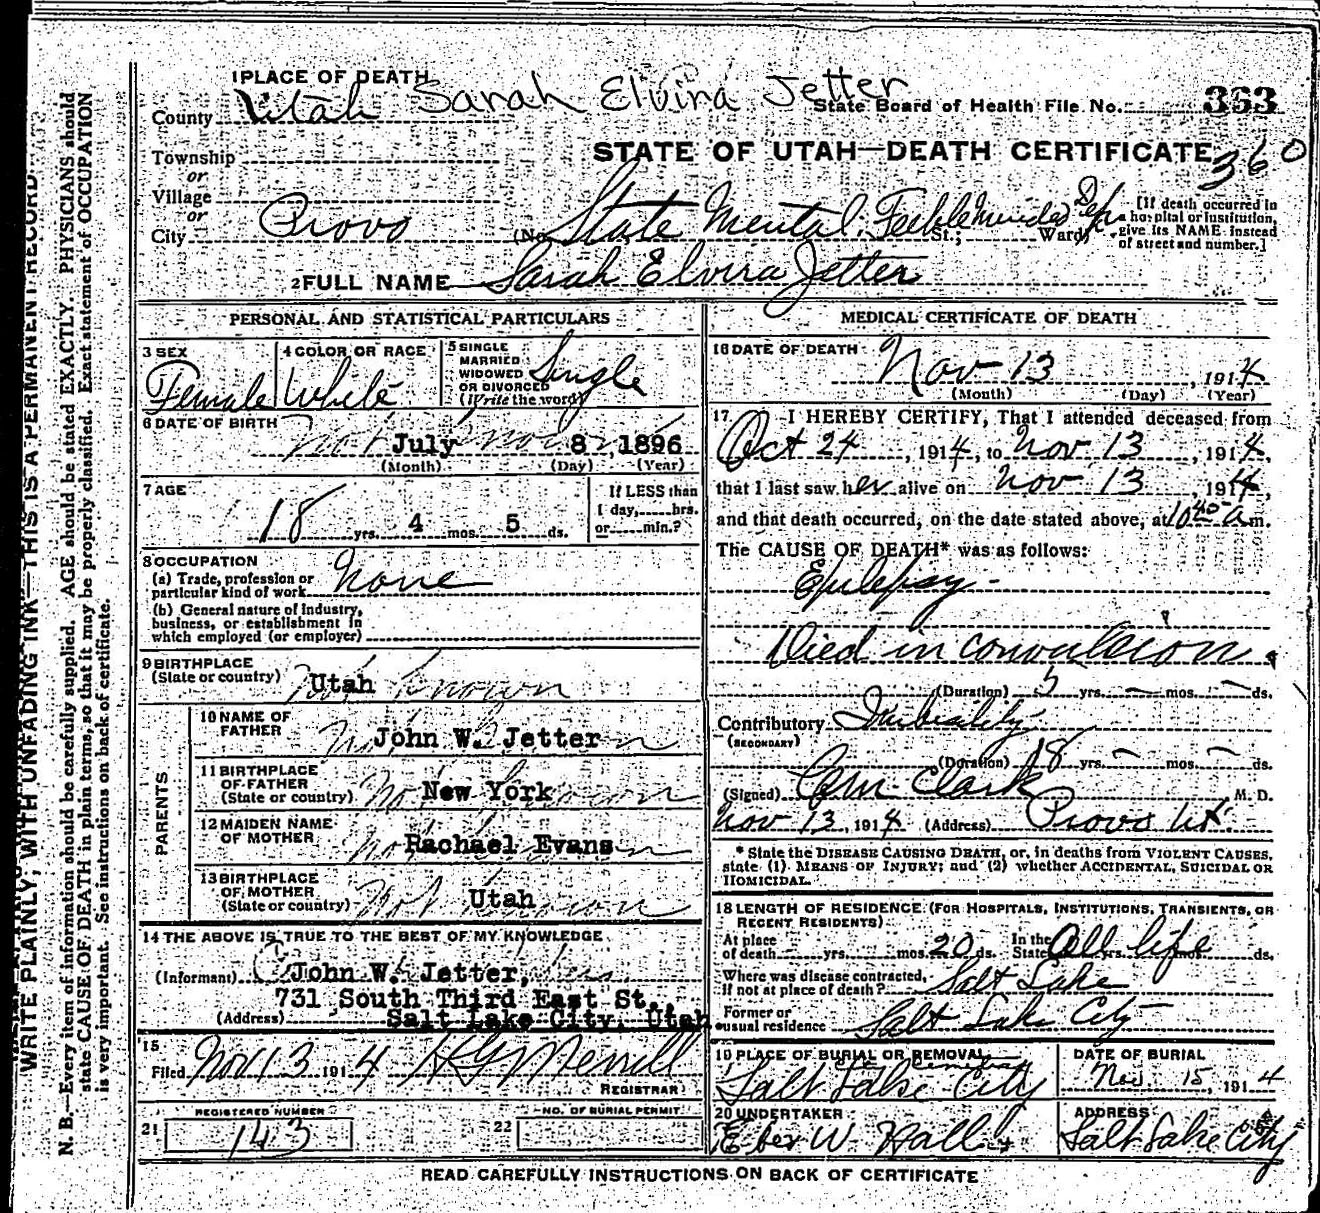 1 PLACE OF DEATH
Sarah Elvira Jetter
County Utah
State Board of Health File No. 353
360
STATE OF UTAH—DEATH CERTIFICATE
Township
or
Village
or
City Provo (No. State Mental, Feeble Minded Dep. St.; Ward)
[If death occurred in
a hospital or institution,
give its NAME instead
of street and number.]
2 FULL NAME Sarah Elvira Jetter
PERSONAL AND STATISTICAL PARTICULARS
3 SEX
Female
4 COLOR OR RACE
White
5 SINGLE
MARRIED
WIDOWED
OR DIVORCED
(Write the word)
Single
6 DATE OF BIRTH
Not known
July 8, 1896
(Month) (Day) (Year)
7 AGE
18 yrs. 4 mos. 5 ds.
If LESS than
1 day, hrs.
or min.?
8 OCCUPATION
(a) Trade, profession or
particular kind of work None
(b) General nature of industry,
business, or establishment in
which employed (or employer)
9 BIRTHPLACE
(State or country) Not known
Utah
PARENTS
10 NAME OF
FATHER
Not known
John W. Jetter
11 BIRTHPLACE
OF FATHER
(State or country) Not known
New York
12 MAIDEN NAME
OF MOTHER
Not known
Rachael Evans
13 BIRTHPLACE
OF MOTHER
(State or country) Not known
Utah
14 THE ABOVE IS TRUE TO THE BEST OF MY KNOWLEDGE
(Informant) John W. Jetter,
731 South Third East St.,
(Address) Salt Lake City, Utah
15
Filed Nov 13 1914 H G Merrill
REGISTRAR
REGISTERED NUMBER
21 143
NO. OF BURIAL PERMIT
22
MEDICAL CERTIFICATE OF DEATH
16 DATE OF DEATH
Nov 13, 1914
(Month) (Day) (Year)
17 I HEREBY CERTIFY, That I attended deceased from
Oct 24, 1914, to Nov 13, 1914,
that I last saw her alive on Nov 13 1914,
and that death occurred, on the date stated above, at 10 40 a m.
The CAUSE OF DEATH* was as follows:
Epilepsy -
Died in convulsion.
(Duration) 5 yrs. — mos. — ds.
Contributory Imbecility
(SECONDARY)
(Duration) 18 yrs. — mos. — ds.
(Signed) Clark M. D.
Nov 13, 1914 (Address) Provo Ut.
* State the DISEASE CAUSING DEATH, or, in deaths from VIOLENT CAUSES,
state (1) MEANS OF INJURY; and (2) whether ACCIDENTAL, SUICIDAL OR
HOMICIDAL.
18 LENGTH OF RESIDENCE (FOR HOSPITALS, INSTITUTIONS, TRANSIENTS, OR
RECENT RESIDENTS)
At place
of death yrs. mos. 20 ds. In the
State All life yrs. mos. ds.
Where was disease contracted,
if not at place of death? Salt Lake
Former or
usual residence Salt Lake City
19 PLACE OF BURIAL OR REMOVAL
City Cemetery
Salt Lake City
DATE OF BURIAL
Nov. 15, 1914
20 UNDERTAKER
Eber W. Hall
ADDRESS
Salt Lake City
READ CAREFULLY INSTRUCTIONS ON BACK OF CERTIFICATE
WRITE PLAINLY, WITH UNFADING INK—THIS IS A PERMANENT RECORD.
N. B.—Every item of information should be carefully supplied. AGE should be stated EXACTLY. PHYSICIANS should
state CAUSE OF DEATH in plain terms, so that it may be properly classified. Exact statement of OCCUPATION
is very important. See instructions on back of certificate.